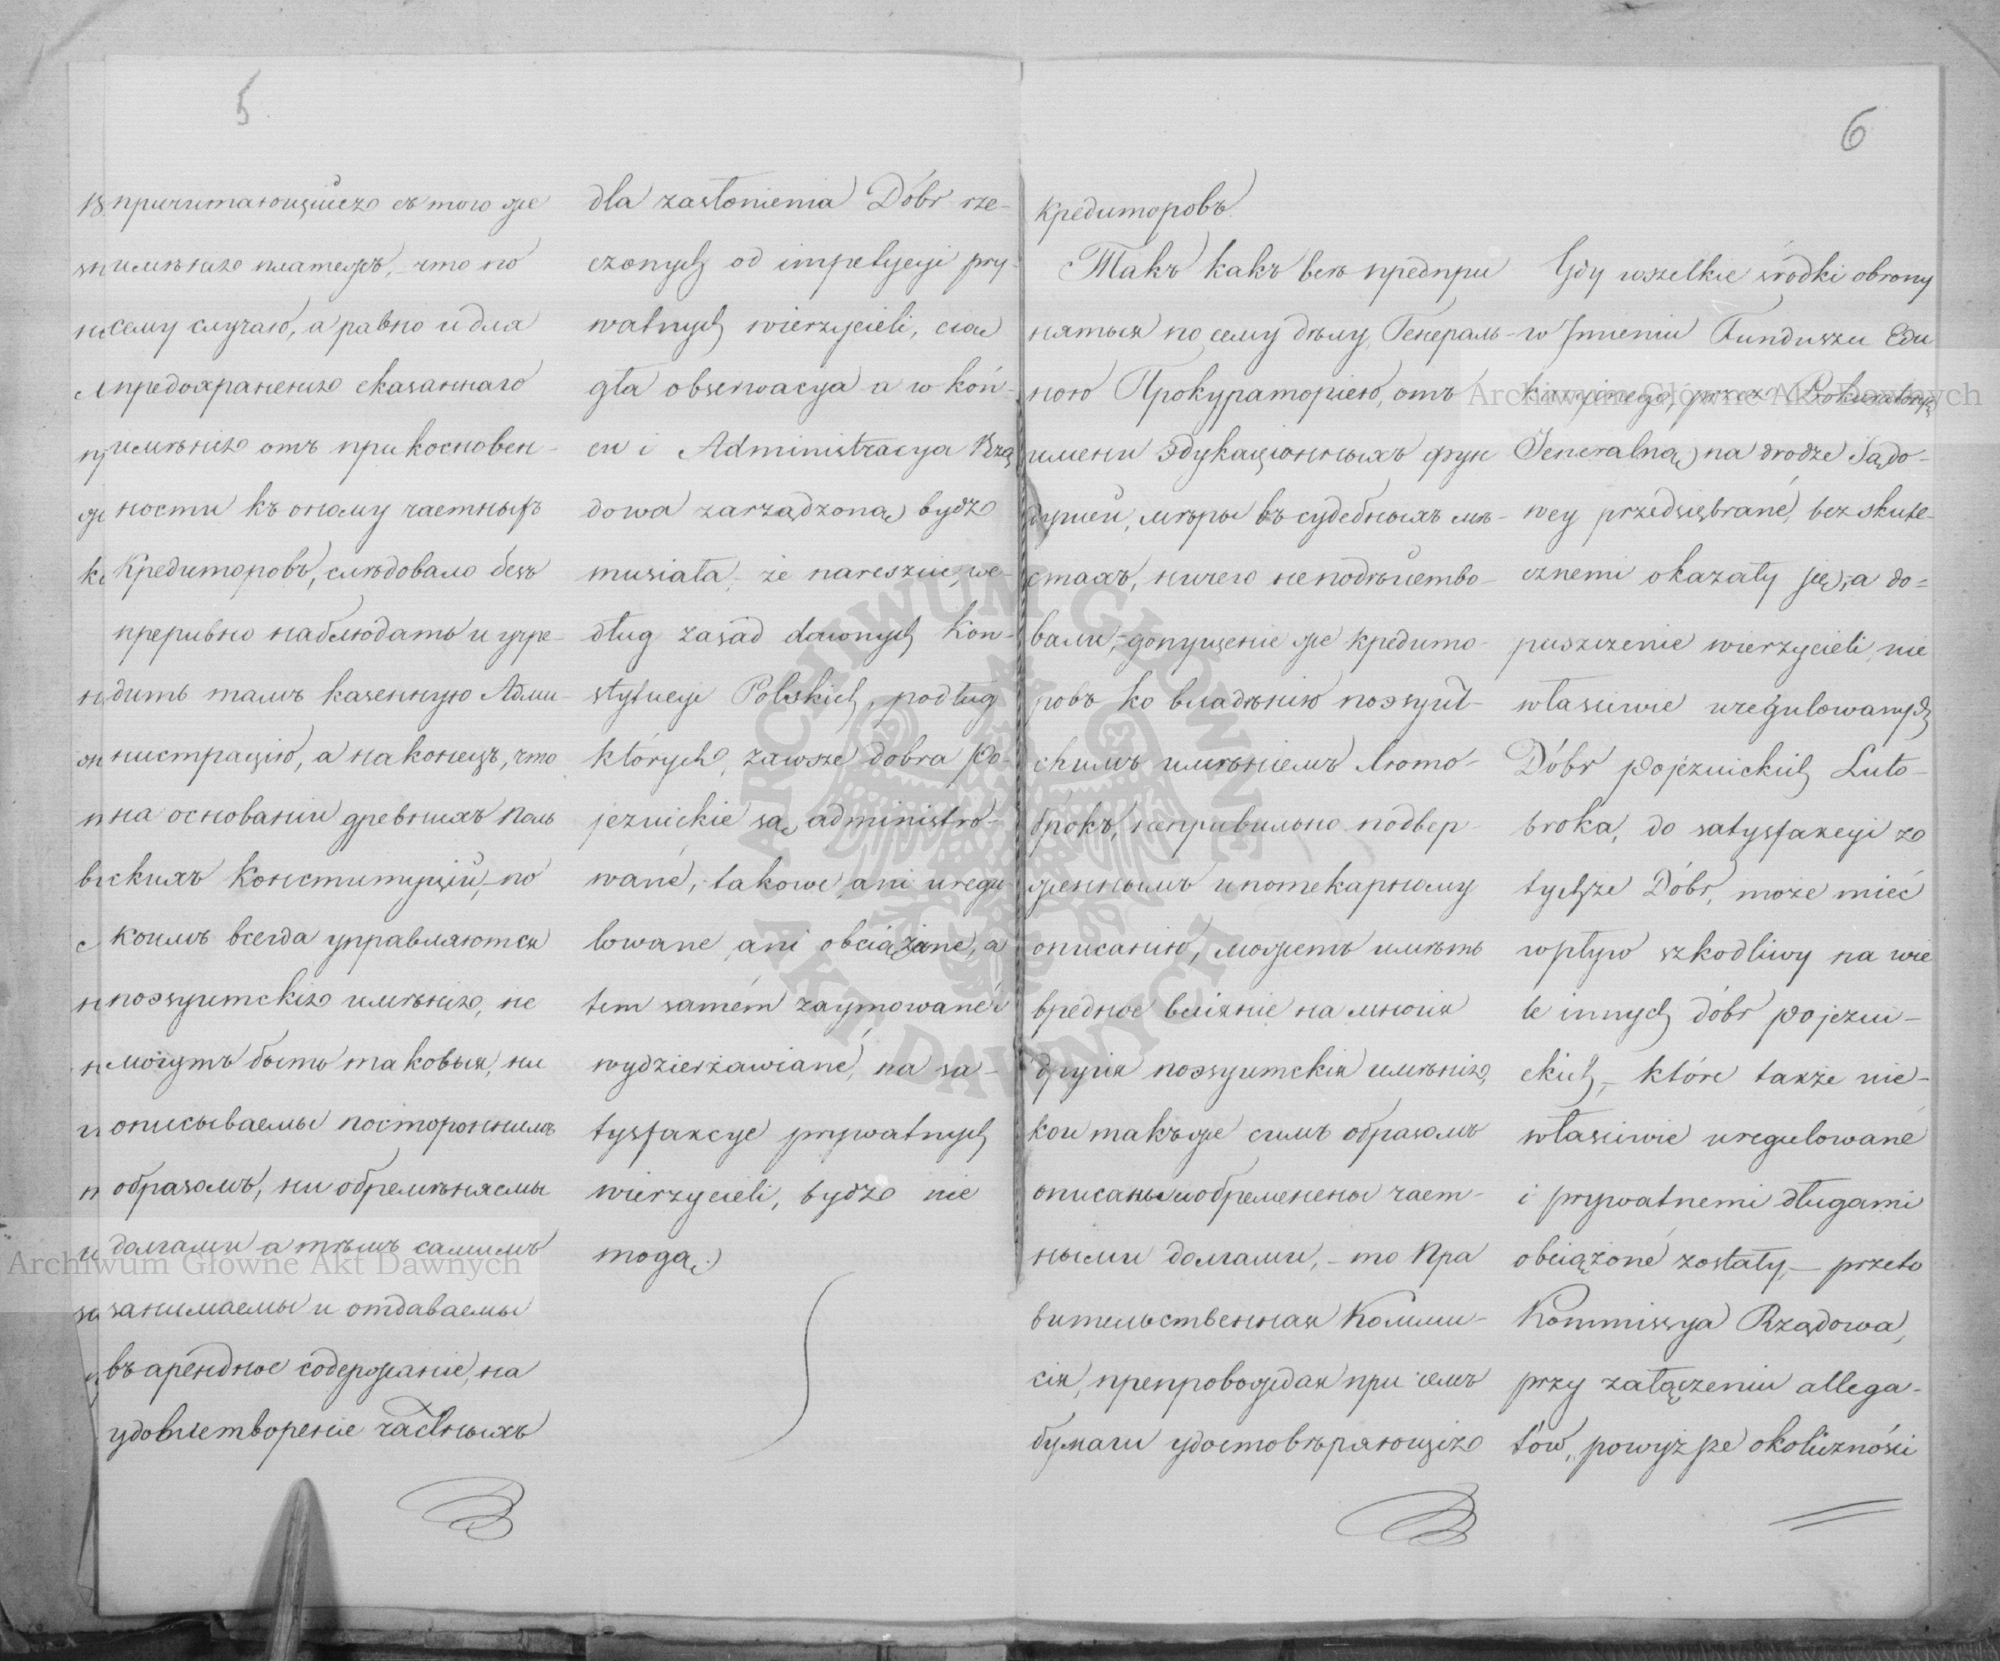 5
причитающіися съ того же
имѣнія платежъ, – что по
сему случаю, а равно и для
предохраненія сказаннаго
имѣнія отъ прикосновен-
ности къ оному частныхъ
Кредиторовъ, слѣдовало безъ
прерывно наблюдать и учре-
дить тамъ казенную Адми-
нистрацію, а наконецъ, что
на основаніи древнихъ Поль
скихъ Конституцій, по
коимъ всегда управляются
поэзуитскія имѣнія, не
могутъ быть таковыя, ни
описываемы постороннимъ
образомъ, ни обремѣняемы
долгами а тѣмъ самимъ
занимаемы и отдаваемы
въ арендное содержаніе, на
удовлетвореніе частныхъ
dla zasłonienia Dóbr rze-
czonych od impetycyi pry-
watnych wierzycieli, cią
gła obserwacya a w koń-
cu i Administracya Rzą
dowa zarządzoną bydź
musiała, że nareszcie, we-
dług zasad dawnych Kon-
stytucyi Polskich, podług
których, zawsze dobra Po-
jezuickie są administro-
wane, takowe ani uregu
lowane ani obciążane, a
tem samém zaymowane i
wydzierżawiane, na sa-
tysfakcye prywatnych
wierzycieli, bydź nie
mogą.
6
кредиторовъ.
Такъ какъ всѣ предпри
нятыя по сему дѣлу, Генераль-
ною Прокураторіею, отъ
имени Эдукаціонныхъ фун
душей, мѣры въ судебныхъ мѣ-
стахъ, ничего неподѣйство-
вали, – допущеніе же кредито-
ровъ ко владѣнію поэзуит-
скимъ имѣніемъ Лютo-
брокъ, неправильно подвер-
женнымъ ипотекарному
описанію, можетъ имѣть
вредное вліяніе на многія
другія поэзуитскія имѣнія,
кои такъ же симъ образомъ
описаны и обременены част-
ными долгами, – то Пра
вительственная Комми-
сія, препровождая при семъ
бумаги удостовѣряющія
Gdy wszelkie środki obrony
w Imieniu Funduszu Edu
kacyinego, przez Prokuratoryą
Generalną na drodze Sądo-
wey przedsiębrane, bez skute-
cznemi okazały się, a do-
puszczenie wierzycieli, nie
właściwie uregulowanych
Dóbr pojezuickich Luto-
broka, do satysfakcyi z
tychże Dóbr, może mieć
wpływ szkodliwy na wie
le innych dóbr pojezui-
ckich, – które także nie-
właściwie uregulowane
i prywatnemi długami
obciążone zostały, – przeto
Kommissya Rządowa,
przy załączeniu allega-
tów, powyższe okoliczności
Archiwum Główne Akt Dawnych
Archiwum Główne Akt Dawnych
ARCHIWUM GŁÓWNE AKT DAWNYCH